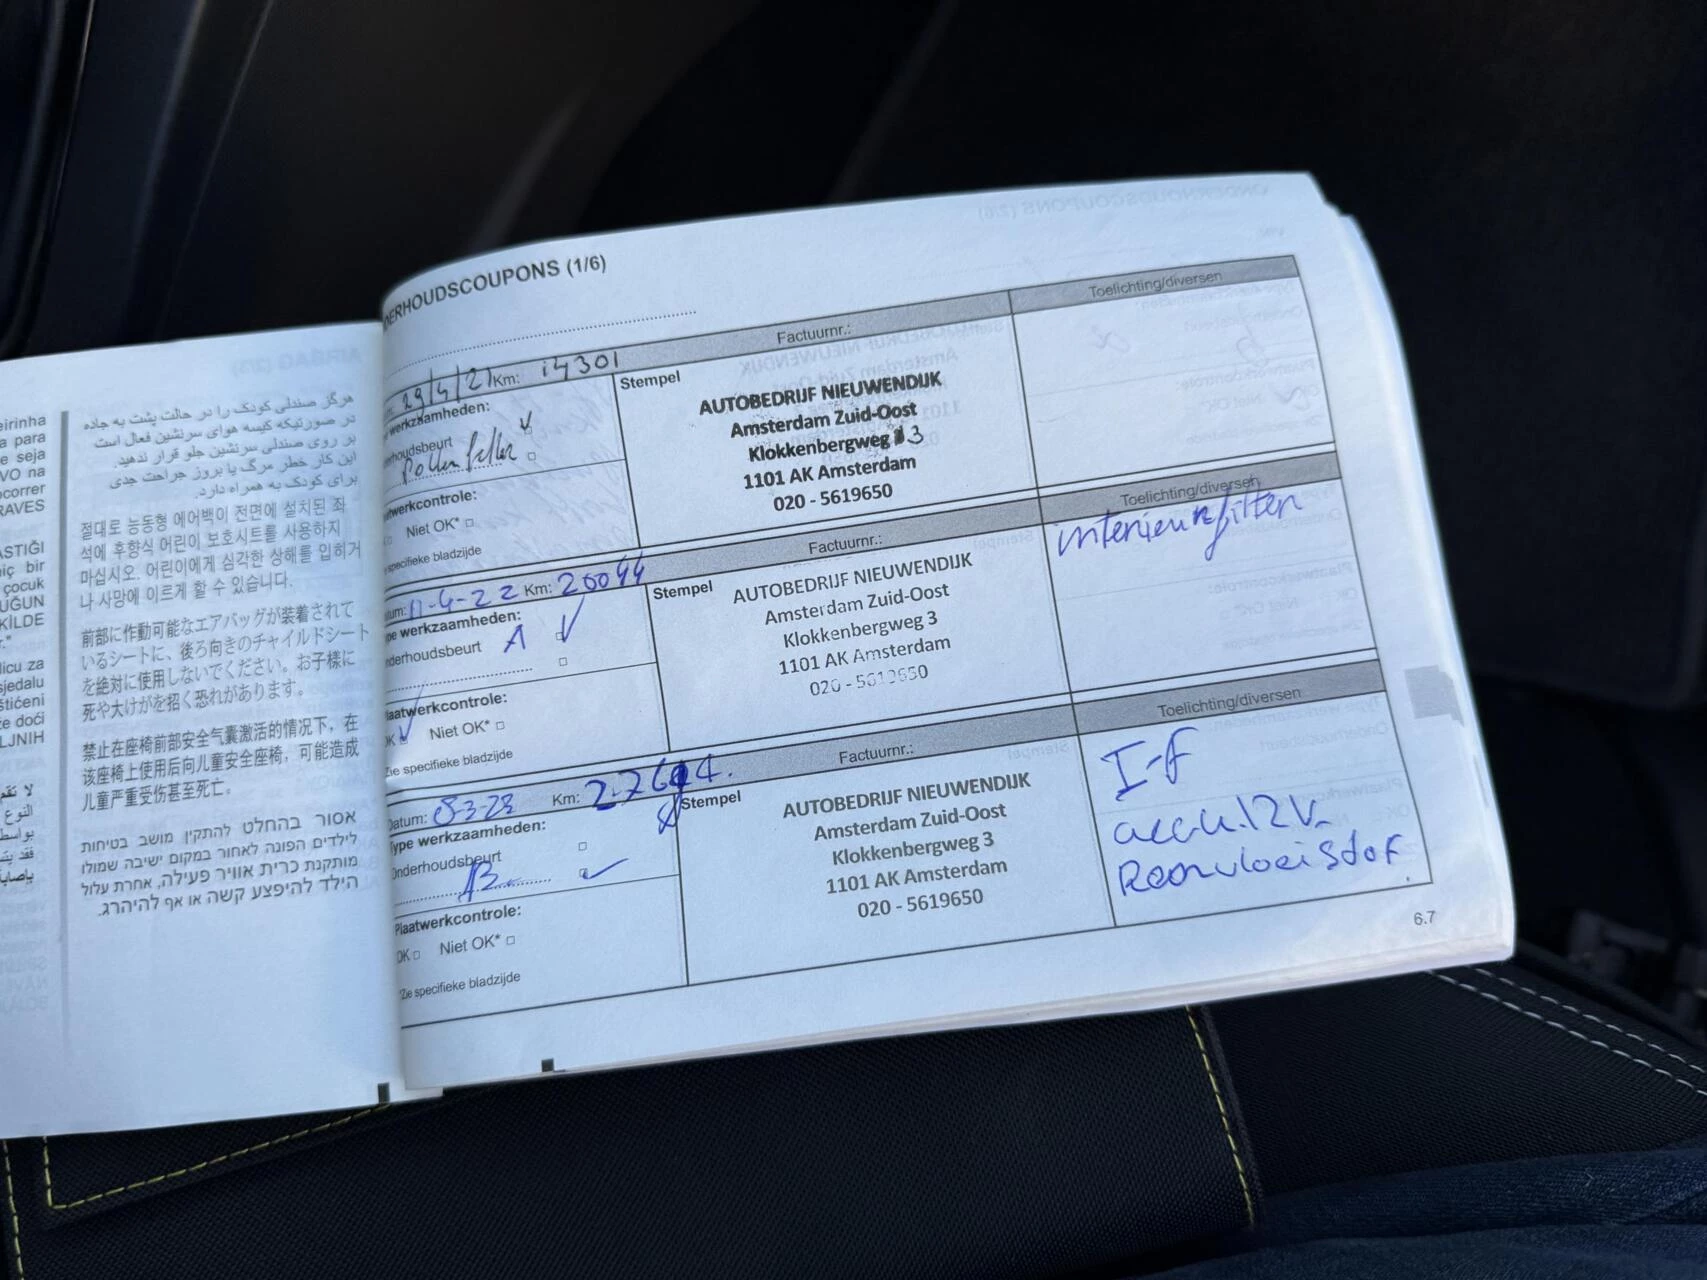 eirinha
a para
e seja
VO na
ocorrer
RAVES
ASTIĞI
hiç bir
çocuk
UĞUN
KİLDE
r."
licu za
sjedalu
štićeni
že doći
LJNIH
هرگز صندلی کودک را در حالت پشت به جاده
در صورتیکه کیسه هوای سرنشین فعال است
بر روی صندلی سرنشین جلو قرار ندهید.
این کار خطر مرگ یا بروز جراحت جدی
برای کودک به همراه دارد.
절대로 능동형 에어백이 전면에 설치된 좌
석에 후향식 어린이 보호시트를 사용하지
마십시오. 어린이에게 심각한 상해를 입히거
나 사망에 이르게 할 수 있습니다.
前部に作動可能なエアバッグが装着されて
いるシートに、後ろ向きのチャイルドシート
を絶対に使用しないでください。お子様に
死や大けがを招く恐れがあります。
禁止在座椅前部安全气囊激活的情况下，在
该座椅上使用后向儿童安全座椅，可能造成
儿童严重受伤甚至死亡。
אסור בהחלט להתקין מושב בטיחות
לילדים הפונה לאחור במקום ישיבה שמולו
מותקנת כרית אוויר פעילה, אחרת עלול
הילד להיפצע קשה או אף להיהרג.
DERHOUDSCOUPONS (1/6)
29/4/21 Km: 14301 Factuurnr.: Toelichting/diversen
werkzaamheden:
erhoudsbeurt
Pollen filter
atwerkcontrole:
Niet OK*
specifieke bladzijde
Stempel
AUTOBEDRIJF NIEUWENDIJK
Amsterdam Zuid-Oost
Klokkenbergweg 3
1101 AK Amsterdam
020 - 5619650
atum: 11-4-22 Km: 20044 Factuurnr.: Toelichting/diversen
ype werkzaamheden:
nderhoudsbeurt A
laatwerkcontrole:
OK Niet OK*
Zie specifieke bladzijde
Stempel
AUTOBEDRIJF NIEUWENDIJK
Amsterdam Zuid-Oost
Klokkenbergweg 3
1101 AK Amsterdam
020 - 5619650
interieurfilter
Datum: 8-3-23 Km: Factuurnr.: Toelichting/diversen
Type werkzaamheden:
Onderhoudsbeurt
B
Plaatwerkcontrole:
OK Niet OK*
*Zie specifieke bladzijde
Stempel
AUTOBEDRIJF NIEUWENDIJK
Amsterdam Zuid-Oost
Klokkenbergweg 3
1101 AK Amsterdam
020 - 5619650
I-f
accu.12V
Remvloeistof
6.7